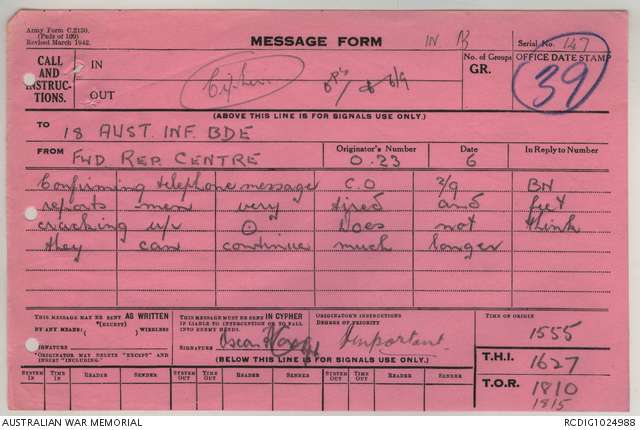 Army Form C.2130.
(Pads of 100)
Revised March 1942.
MESSAGE FORM
IN
Serial No. 147
CALL AND INSTRUCTIONS.
IN
OUT
Cipher
6/9
No. of Groups
GR.
OFFICE DATE STAMP
39
(ABOVE THIS LINE IS FOR SIGNALS USE ONLY.)
TO 18 AUST. INF. BDE
FROM FWD. REP. CENTRE
Originator's Number O.23
Date 6
In Reply to Number
Confirming telephone message C.O 2/9 BN
reports men very tired and feet
cracking up O Does not think
they can continue much longer
THIS MESSAGE MAY BE SENT AS WRITTEN
BY ANY MEANS (EXCEPT) WIRELESS
SIGNATURE
*ORIGINATOR MAY DELETE "EXCEPT" AND INSERT "INCLUDING."
THIS MESSAGE MUST BE SENT IN CYPHER
IF LIABLE TO INTERCEPTION OR TO FALL INTO ENEMY HANDS.
SIGNATURE
ORIGINATOR'S INSTRUCTIONS
DEGREE OF PRIORITY
Important
(BELOW THIS LINE IS FOR SIGNALS USE ONLY.)
TIME OF ORIGIN
1555
T.H.I. 1627
T.O.R. 1810
1815
SYSTEM IN TIME IN READER SENDER SYSTEM OUT TIME OUT READER SENDER SYSTEM OUT TIME OUT READER SENDER
AUSTRALIAN WAR MEMORIAL
RCDIG1024988